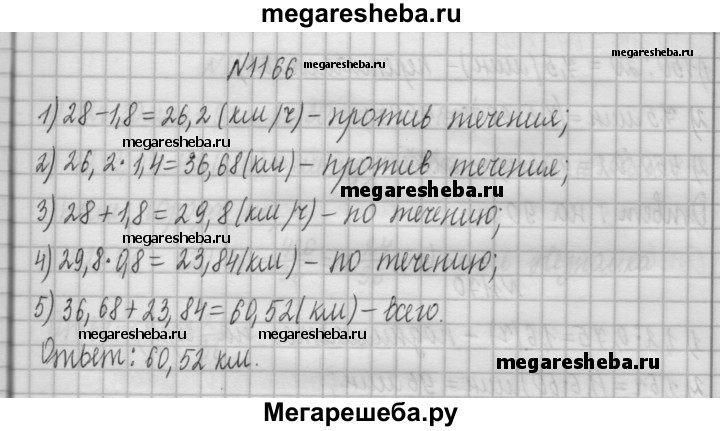 megaresheba.ru
N1166 megaresheba.ru megaresheba.ru
1) 28-1,8=26,2 (км/ч) - против течения;
megaresheba.ru
2) 26,2·1,4=36,68(км) - против течения;
megaresheba.ru
3) 28+1,8=29,8(км/ч) - по течению;
megaresheba.ru
4) 29,8·0,8=23,84(км) - по течению;
5) 36,68+23,84=60,52(км) - всего.
megaresheba.ru megaresheba.ru
Ответ: 60,52 км.
megaresheba.ru
Мегарешеба.ру